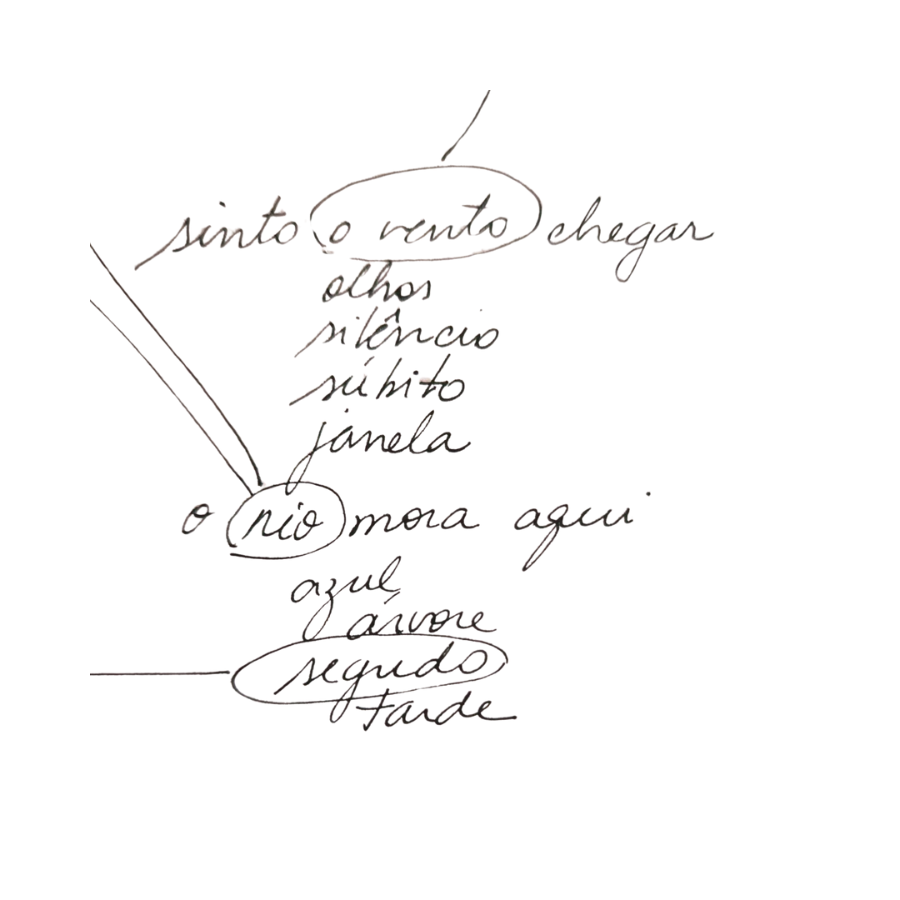 sinto o vento chegar
olhos
silêncio
súbito
janela
o rio mora aqui
azul
árvore
segredo
tarde